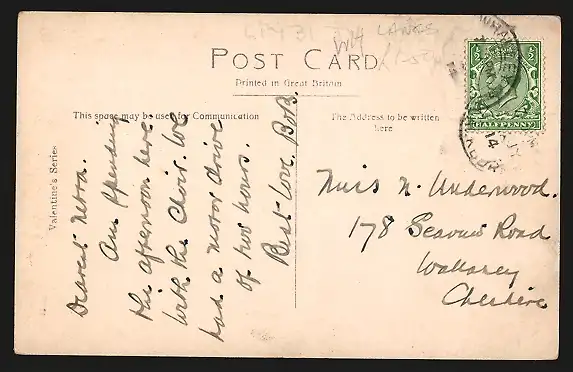 POST CARD
Printed in Great Britain
This space may be used for Communication
The Address to be written
here
Valentine's Series
Dearest Netta.
Am spending
the afternoon here
with the Choir. We
had a motor drive
of two hours.
Best love. Bob.
Miss N. Underwood.
178 Road
Wallasey
Cheshire
HALFPENNY
14
LANCS